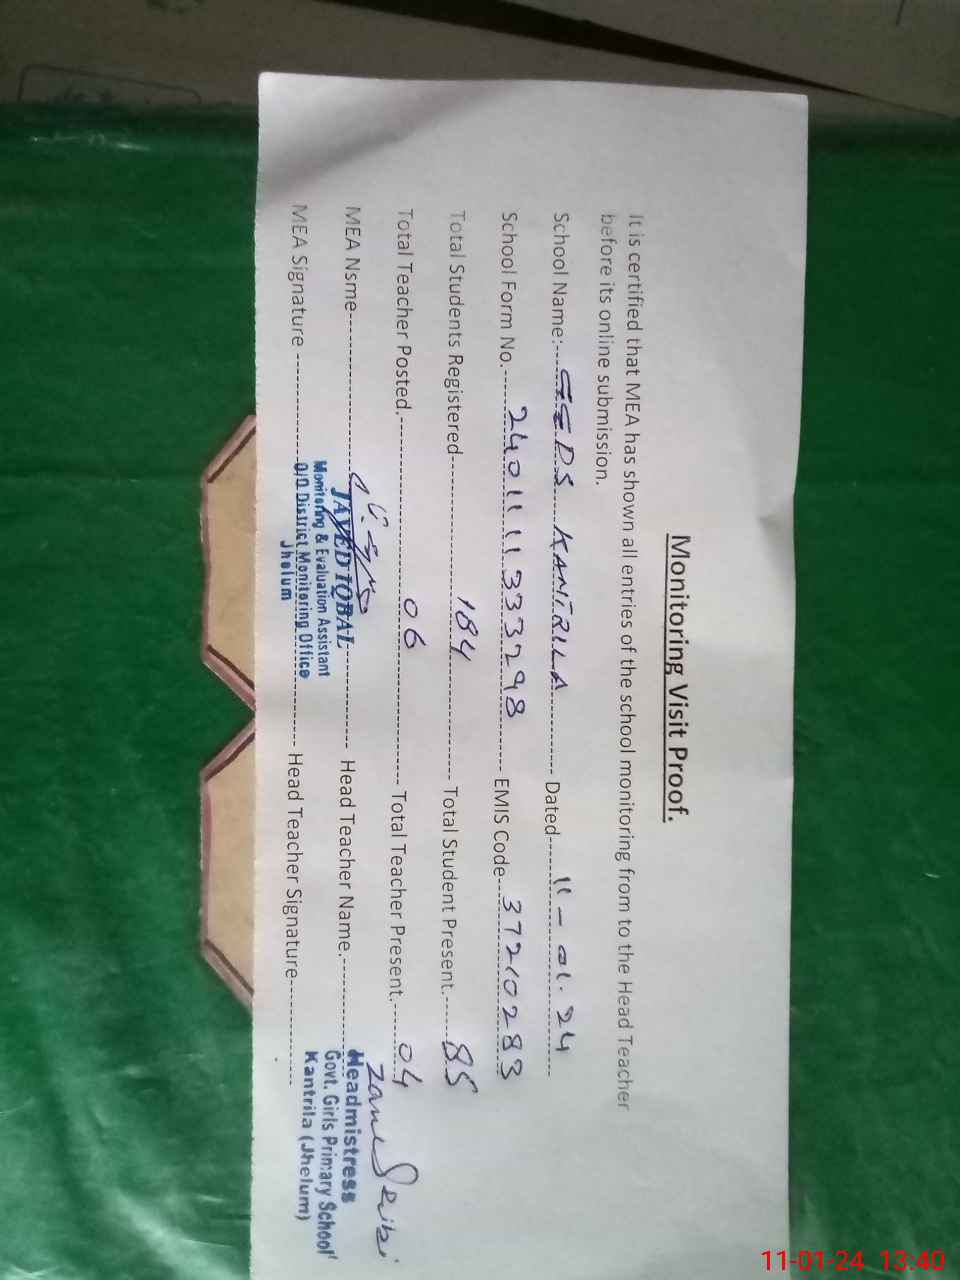 Monitoring Visit Proof.
It is certified that MEA has shown all entries of the school monitoring from to the Head Teacher
before its online submission.
School Name:- GEPS KANTRILA Dated 11-01-24
School Form No. 2401111333298 EMIS Code 37210283
Total Students Registered 184 Total Student Present. 85
Total Teacher Posted. 06 Total Teacher Present. 04
MEA Nsme JAVED IQBAL Head Teacher Name. Headmistress
Monitoring & Evaluation Assistant Govt. Girls Primary School
MEA Signature O/O District Monitoring Office Head Teacher Signature Kantrila (Jhelum)
Jhelum
11-01-24 13:40